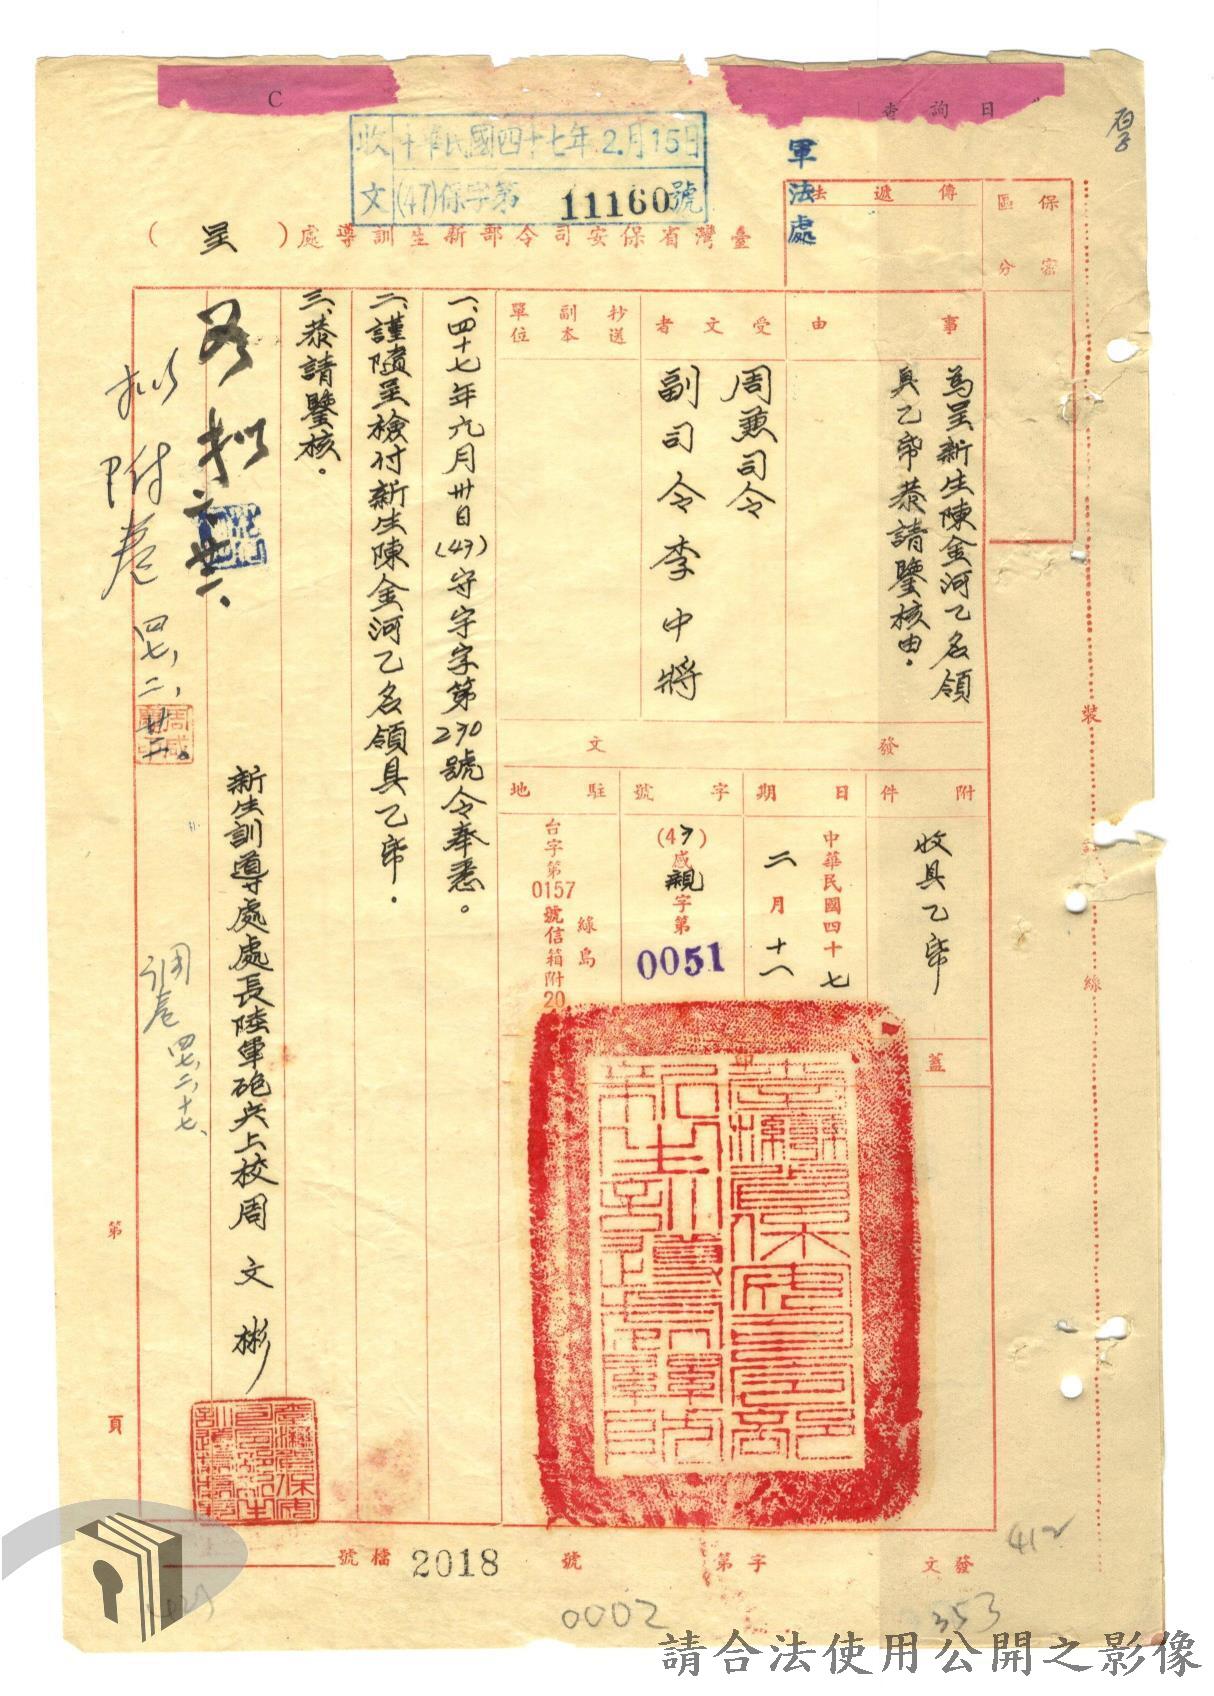 C
查詢日
收 中華民國四十七年2月15日
文 (47)保字第 11160號
軍法處
臺灣省保安司令部新生訓導處（呈）
保密
區分
傳遞法
事由
為呈新生陳金河乙名領
具乙帋恭請鑒核由。
受文者
周兼司令
副司令李中將
抄送
副本
單位
發文
附件
收具乙帋
日期
中華民國四十七
二月十
字號
感親字第
0051
駐地
綠島
台字第0157號信箱附20
蓋
臺灣省保安司令部
新生訓導處
一、四十七年元月卅日(47)守字第230號令奉悉。
二、謹隨呈檢付新生陳金河乙名領具乙帋。
三、恭請鑒核。
新生訓導處處長陸軍砲兵上校周文彬
擬附卷
四七、二、廿二。
調卷
四七、二、十七、
裝
線
第
頁
檔號 2018
發文 字第 號
0002
353
412
請合法使用公開之影像